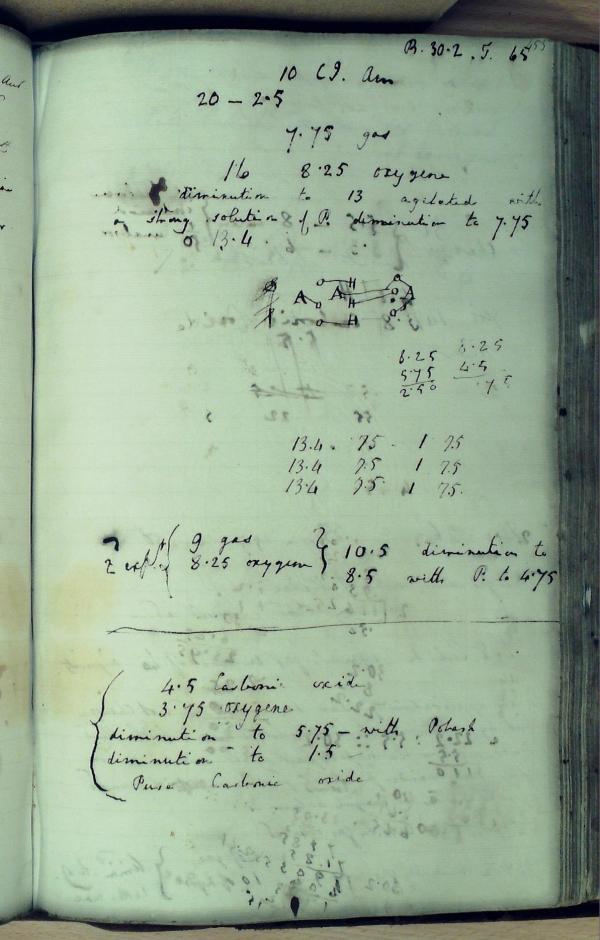 B. 30.2. T. 65
10 Cg. Am
20 - 2.5
7.75 gas
16 8.25 oxygene
diminution to 13 agitated with
strong solution of P. diminution to 7.75
13.4.
O H O
A A H O A
O H O
6.25 6.25
5.75 4.5
2.50 .75
13.4. 75 - 1 75
13.4 75 1 75
13.4 75 1 75.
2 exp. 9 gas
8.25 oxygene
10.5 diminution to
8.5 with P. to 4.75
4.5 Carbonic oxide
3.75 oxygene
diminution to 5.75 - with Potash
diminution to 1.5
Pure Carbonic oxide